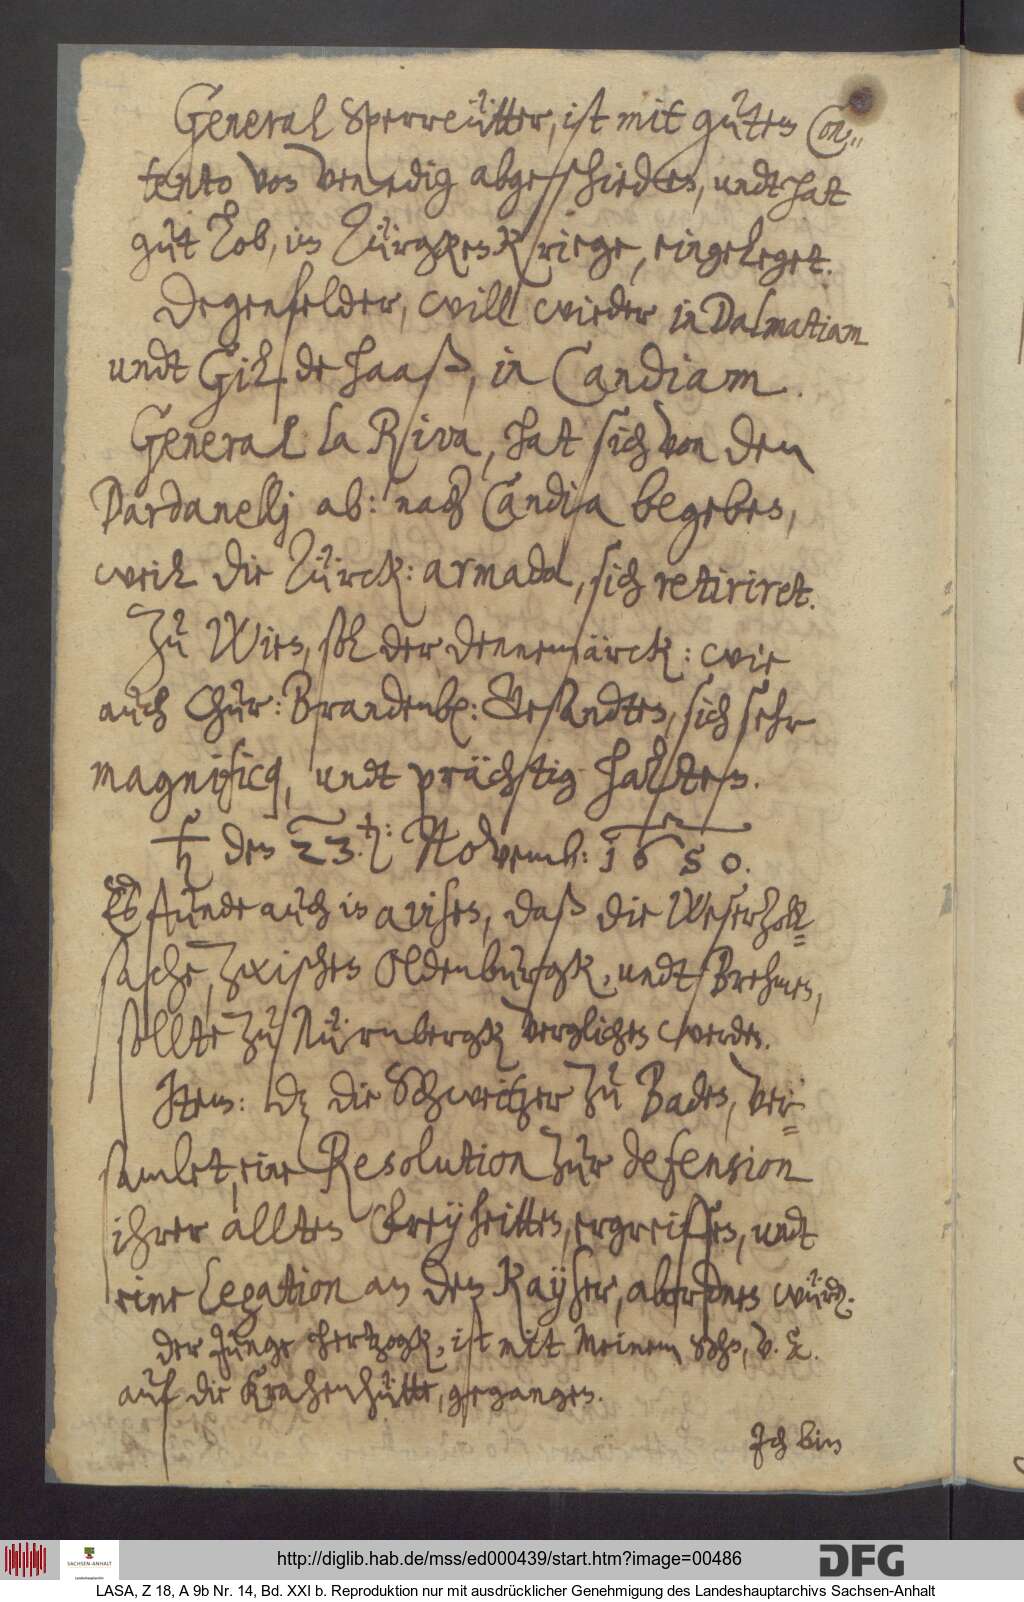 General Sperreütter, ist mit gutem Con„
tento von Venedig abgeschieden, undt hat
gut lob, im Türgkenkriege, eingeleget.
Degenfelder, will wieder in Dalmatiam
undt Gil de Haaß, in Candiam.
General la Riva, hat sich von den
Dardanellj ab: nach Candia begeben,
weil die Türck: armada, sich retiriret.
Zu Wien, sol der Dennemärck: wie
auch Chur: Brandenb: Gesandten, sich sehr
magnificq, undt prächtig halten.
♄ den 23.ten: Novemb: 1650.
Es stunde auch in avisen, daß die Weserzoll=
sache, zwischen Oldenburgk, undt Brehmen,
sollte zu Nürnbergk verglichen werden.
Item: dz die Schweitzer zu Baden, ver=
samlet, eine Resolution zur defension
ihrer allten Freyheitten, ergreiffen, undt
eine legation an den Kayser, abordnen würd.
der Junge hertzogk, ist mit Meinem Sohn, V. A.
auf die Krahenhütte, gegangen.
Ich bin
http://diglib.hab.de/mss/ed000439/start.htm?image=00486
SACHSEN-ANHALT
DFG
LASA, Z 18, A 9b Nr. 14, Bd. XXI b. Reproduktion nur mit ausdrücklicher Genehmigung des Landeshauptarchivs Sachsen-Anhalt